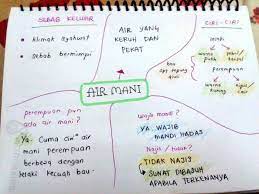 SEBAB KELUAR
• Klimak syahwat?
• Sebab bermimpi
AIR YANG
KERUH DAN
PEKAT
CIRI - CIRI
warna
putih
bau
tepung
perempuan
warna
AIR MANI
perempuan pun
ada air mani?
Ya. Cuma ciri² air
mani perempuan
berbeza dengan
lelaki kecuali bau.
Wajib mandi?
YA. WAJIB
MANDI HADAS
Najis / tidak?
TIDAK NAJIS
• SUNAT DIBASUH
APABILA TERKENANYA